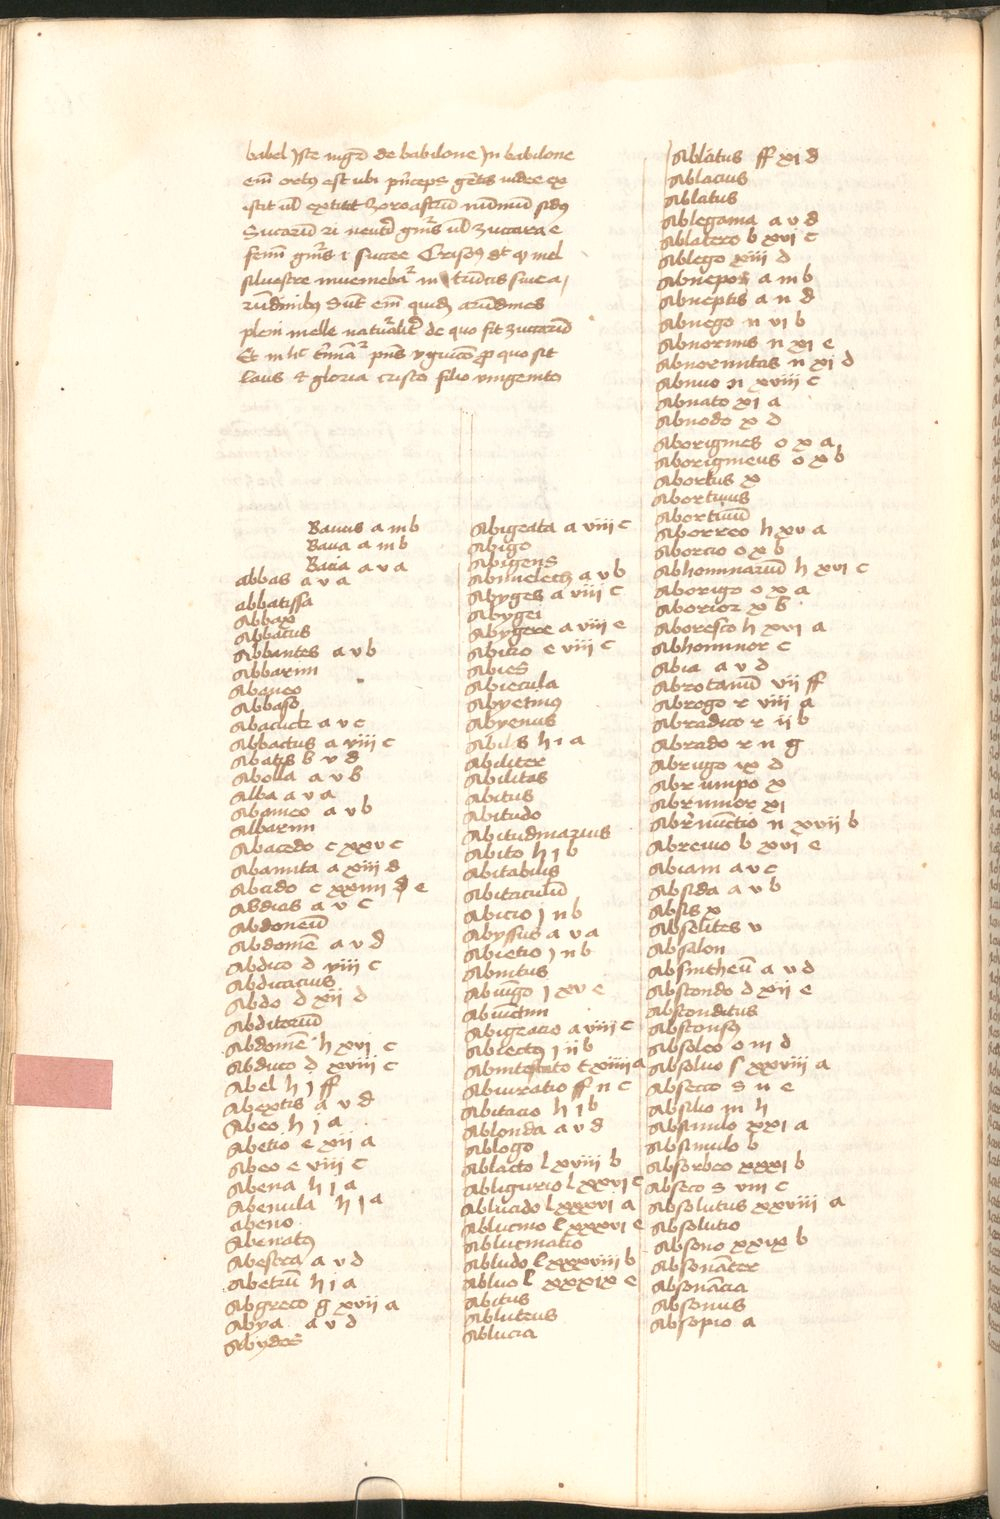 babel Iste nigr̄ de babilone In babilone
em̄ ortꝰ est ubi p̄nceps gētis uidee ex
istit ul̄ extitit Zoroastrū nūmū sidꝰ
Sucarū ri neutr̄ gn̄is ul̄ zuccara e
femī gn̄is i succe Crisoꝰ dt qꝰ mel
siluestre inueniebat̄ in trūcis siue a
rūdinibꝰ Sūt em̄ quidē arūdines
pleni melle nat̄ualit̄ de quo fit zuccarū
Et in hc̄ t̄minat̄ p̄ns ꝓ quo sit
laus et gloria cristo filio vnigenito
Bauus a iii b
Baua a iii b
Bacia a v a
abbas a v a
abbatissa
Abbax
Abbacus
Abbantes a v b
Abbarim
Abaneo
Abbaso
Abacuck a v c
Abbactus a viii c
Abatis b v d
Abolla a v b
Alba a v a
Abameo a v b
Albarim
Abacedo c xxv c
Abamita a xiii d
Abcido c xxiiii e
Abdias a v c
Abdoneū
Abdomē a v d
Abdico d viii c
Abdicacius
Abdo d xii d
Abditoriū
Abdomē h xvi c
Abduco d xviii c
Abel h j ff
Abextis a v d
Abeo h j a
Abetio e xii a
Abeo e viii c
Abena h j a
Abenula h j a
abeno
Abenatꝰ
Abestra a v d
Abetriū h i a
Abgreco g xvii a
Abya a v d
Abydos
Abigeata a viii c
Abigo
Abigens
Abimelech a v b
Abyges a viii c
Abygei
Abygere a viii e
Abicio e viii c
Abies
Abiecula
Abyetinꝰ
Abyenus
Abilis h i a
Abiliter
Abilitas
Abitus
Abitudo
Abitudinarius
Abito h j b
Abitabilis
Abitaculū
Abicio j ii b
Abyssus a v a
Abietio j ii b
Abnitus
Abiūgo j xv e
Abiūctim
Abigeacio a viii c
Ablectꝰ j ii b
Abintestato t xiiii a
Abiuratio ff ii c
Abitacio h i b
Ablonda a v d
Ablogo
Ablacto l xviii b
Abligurio l xxvi c
Ablucido l xxxvi a
Ablucino l xxxvi e
Ablucinatio
Abludo l xxxviii b
Abluo l xxxix e
Abitus
Abluteus
Ablucia
Ablatus ff xi d
Ablacius
Ablatus
Ablegania a v d
Ablatero b xvi c
Ablego xiii d
Abnepos a iii b
Abneptis a ii d
Abnego n vi b
Abnormis n xi e
Abnormitas n xi d
Abnuo n xviii c
Abnato xi a
Abnodo x d
Aborigines o x a
Aborigineus o x b
Abortus x
Abortiuus
Abortiuū
Aborreo h xv a
Aborcio o x b
Abhominariū h xvi c
Aborigo o x a
Aborior x b
Aboresco h xvi a
Abhominor c
Abia a v d
Abrotanū vii ff
Abrogo r viii a
Abradico r ii b
Abrado r ii g
Abrugo ix d
Abrumpo x
Abrumor xi
Abrenūctio n xvii b
Abreuio b xvi e
Abiam a v c
Absida a v b
Absis x
Absolites v
Absalon
Absintheū a v d
Abscondo d xii e
Absconditus
Absconsꝰ
Absoleo o iii d
Absoluo s xxviii a
Absecco s ii e
Absilio iii h
Absimulo xxi a
Absimulo b
Absorbeo xxxi b
Abseco s viii c
Absolutus xxviii a
Absolutio
Absono xxix b
Absonāter
Absonācia
Absonus
Absopio a